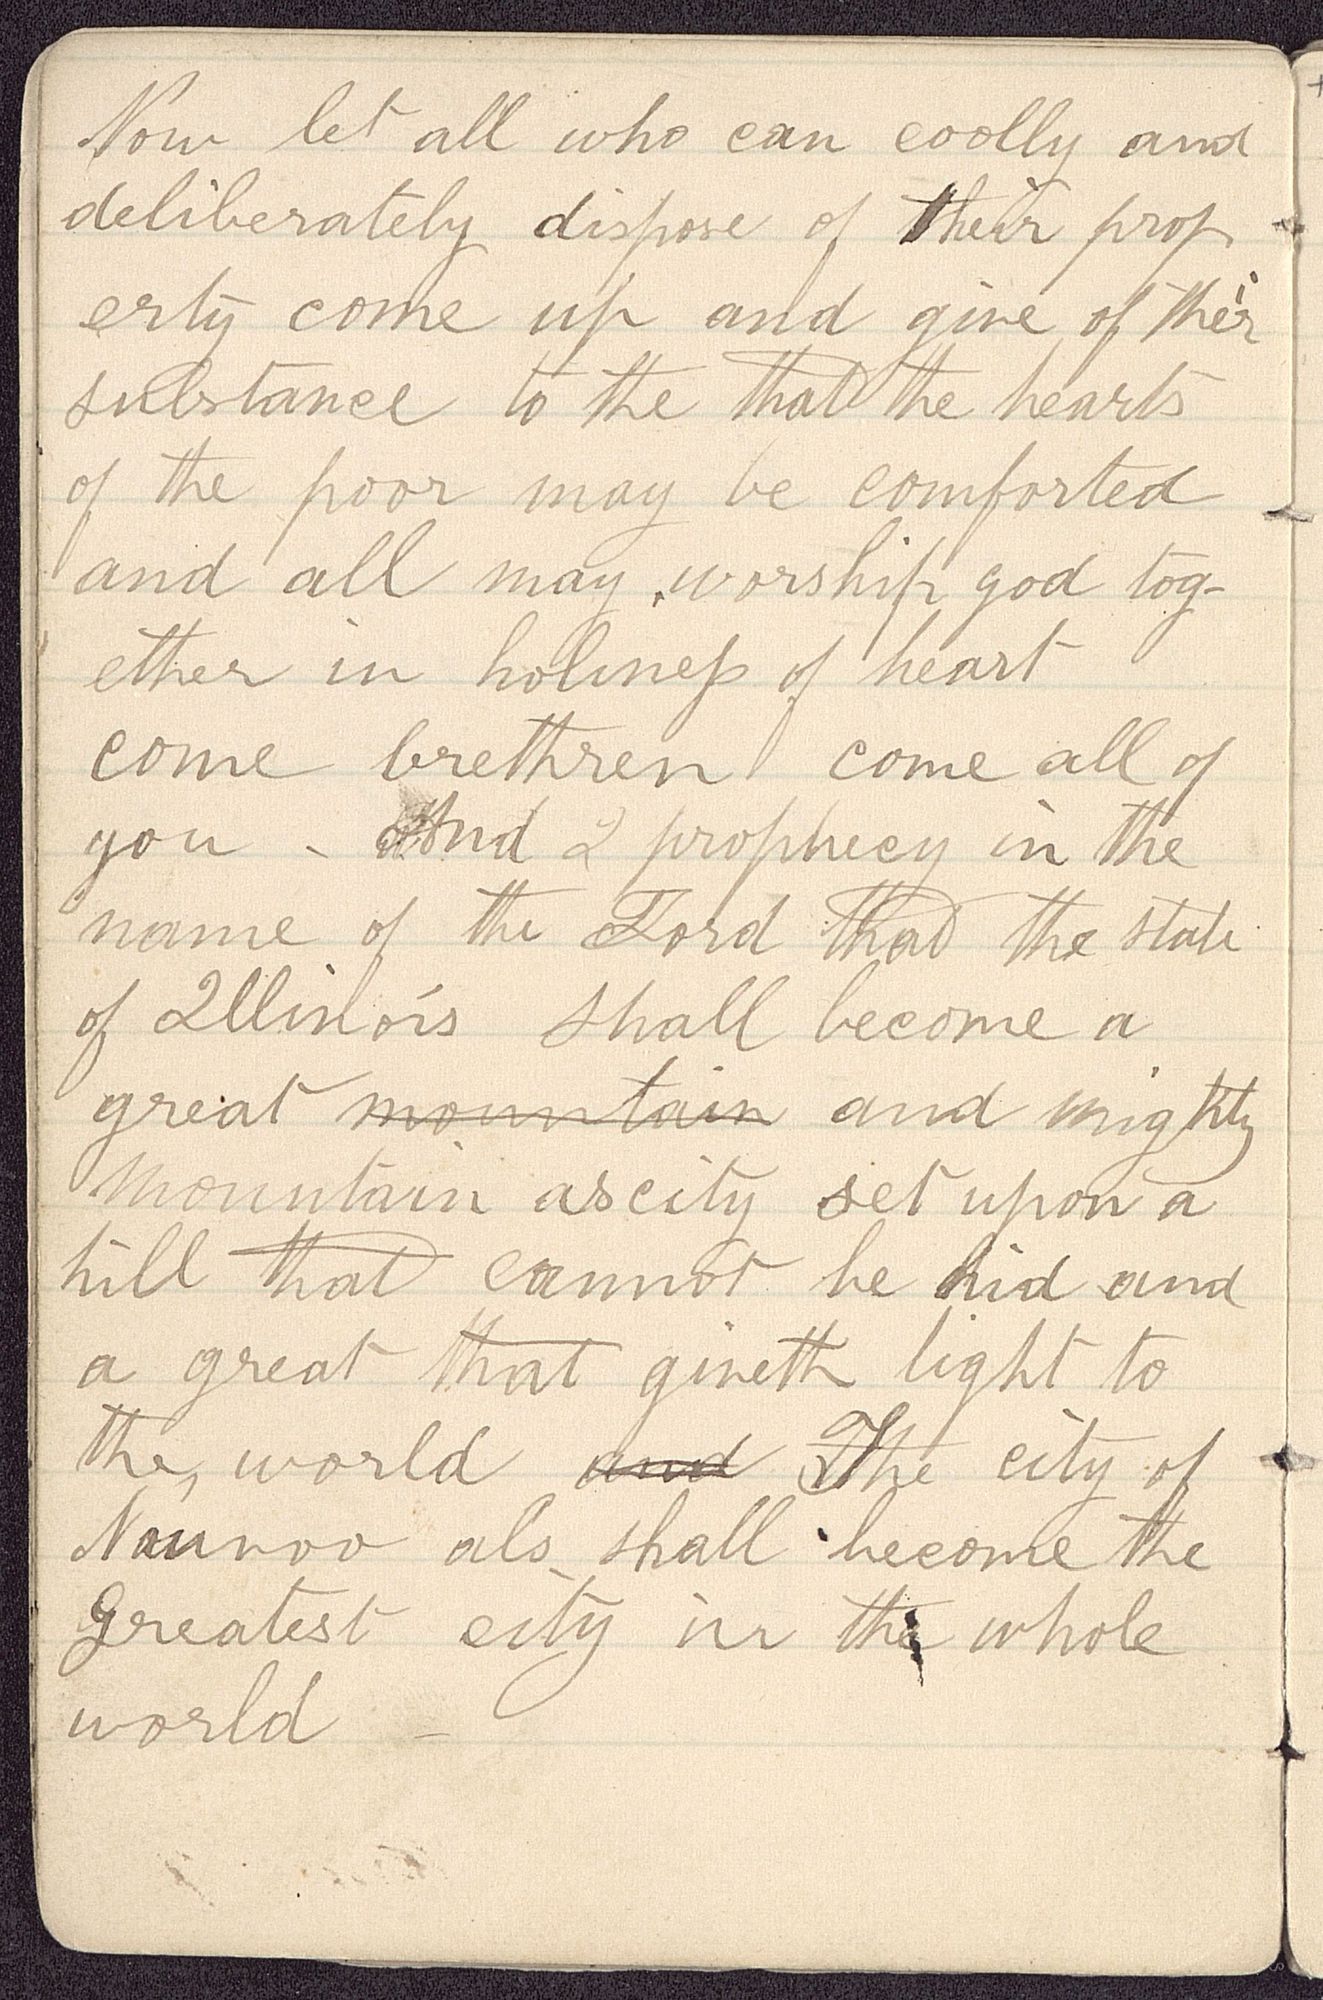 Now let all who can coolly and
deliberately dispose of their prop
erty come up and give of their
substance to the that the hearts
of the poor may be comforted
and all may worship god tog-
ether in holiness of heart
come brethren come all of
you - And I prophecy in the
name of the Lord that the state
of Illinois shall become a
great mountain and mighty
mountain as city set upon a
hill that cannot be hid and
a great that giveth light to
the, world and The city of
Nauvoo als shall become the
greatest city in the whole
world -